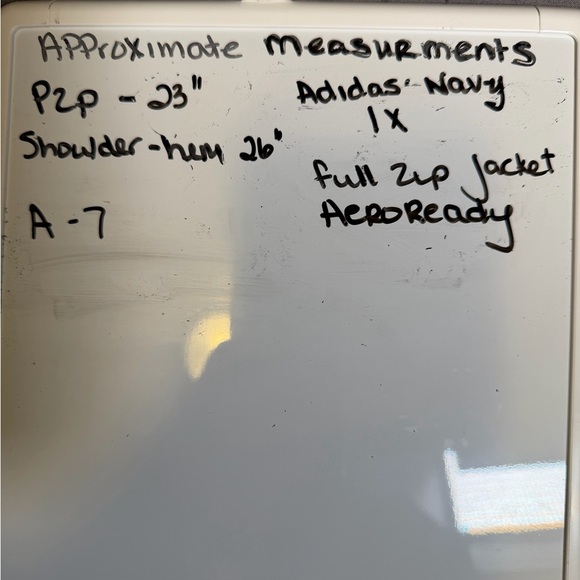 Approximate measurments
P2p - 23"
Shoulder-hem 26"
A-7
Adidas Navy
1X
full zip Jacket
AeroReady